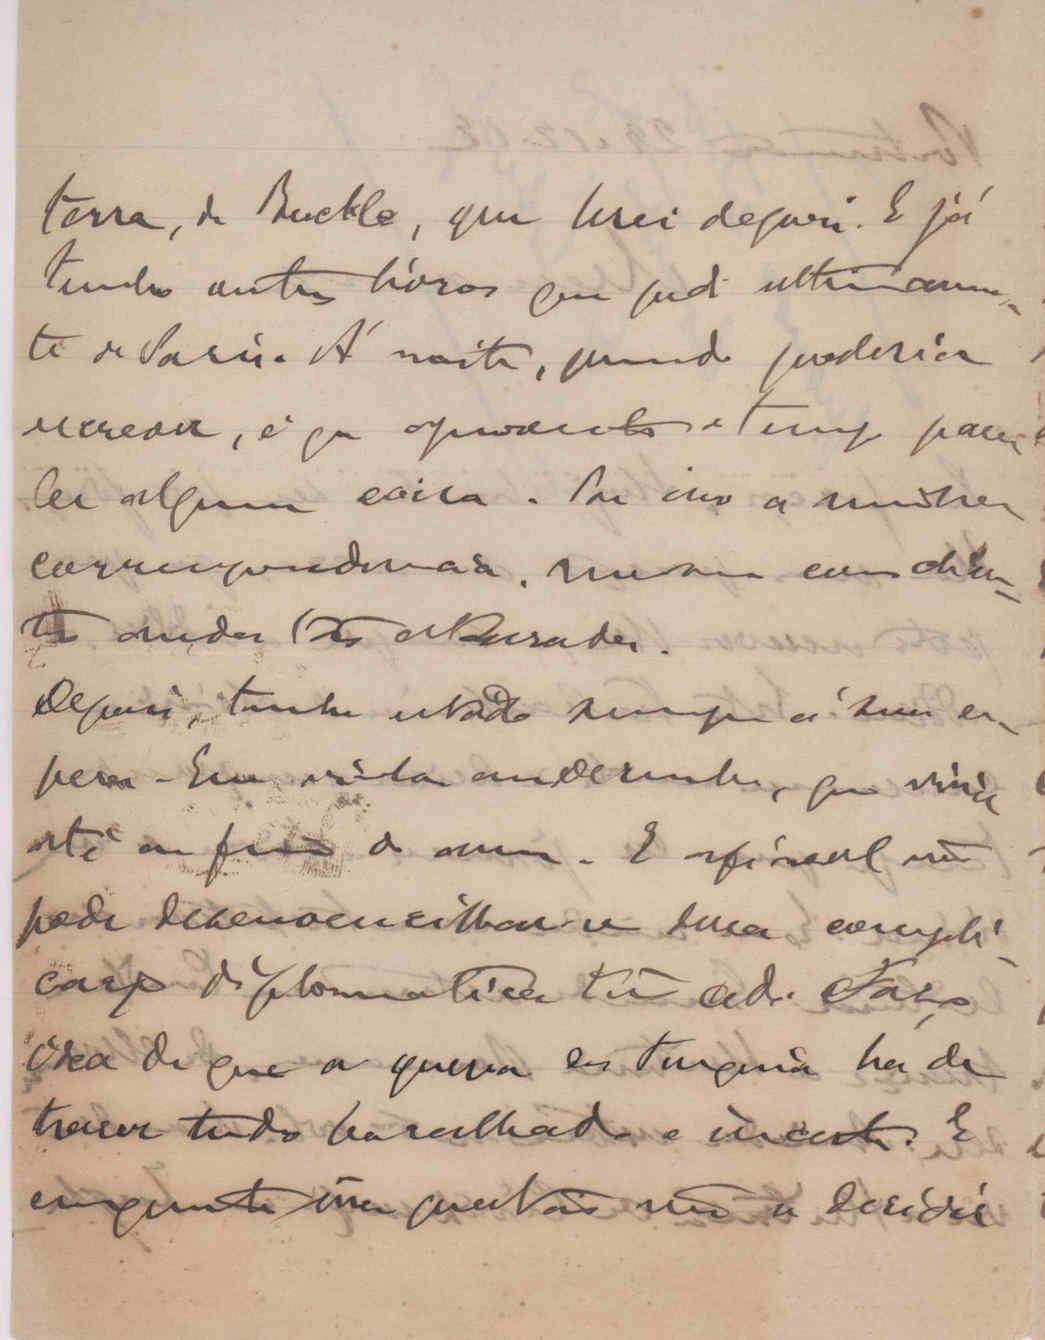 terra, de Buckle, que lerei depois. E já
tenho outros livros que pedi ultimamen-
te de Paris. Á noite, quando poderia
recrear, é que aproveito o tempo para
ler alguma coisa. Por isso a minha
correspondencia, mesmo com doen-
tes anda atrasada.
Depois, tenho estado sempre á sua es-
pera. Em vinha andorinha, que viria
até ao fim do anno. E afinal não
pode desenvencilhar-se dessa compli-
cação diplomatica tão cedo. Faço
idea de que a guerra da Turquia ha de
trazer tudo baralhado e incerto. E
emquanto essa questão não se decidir